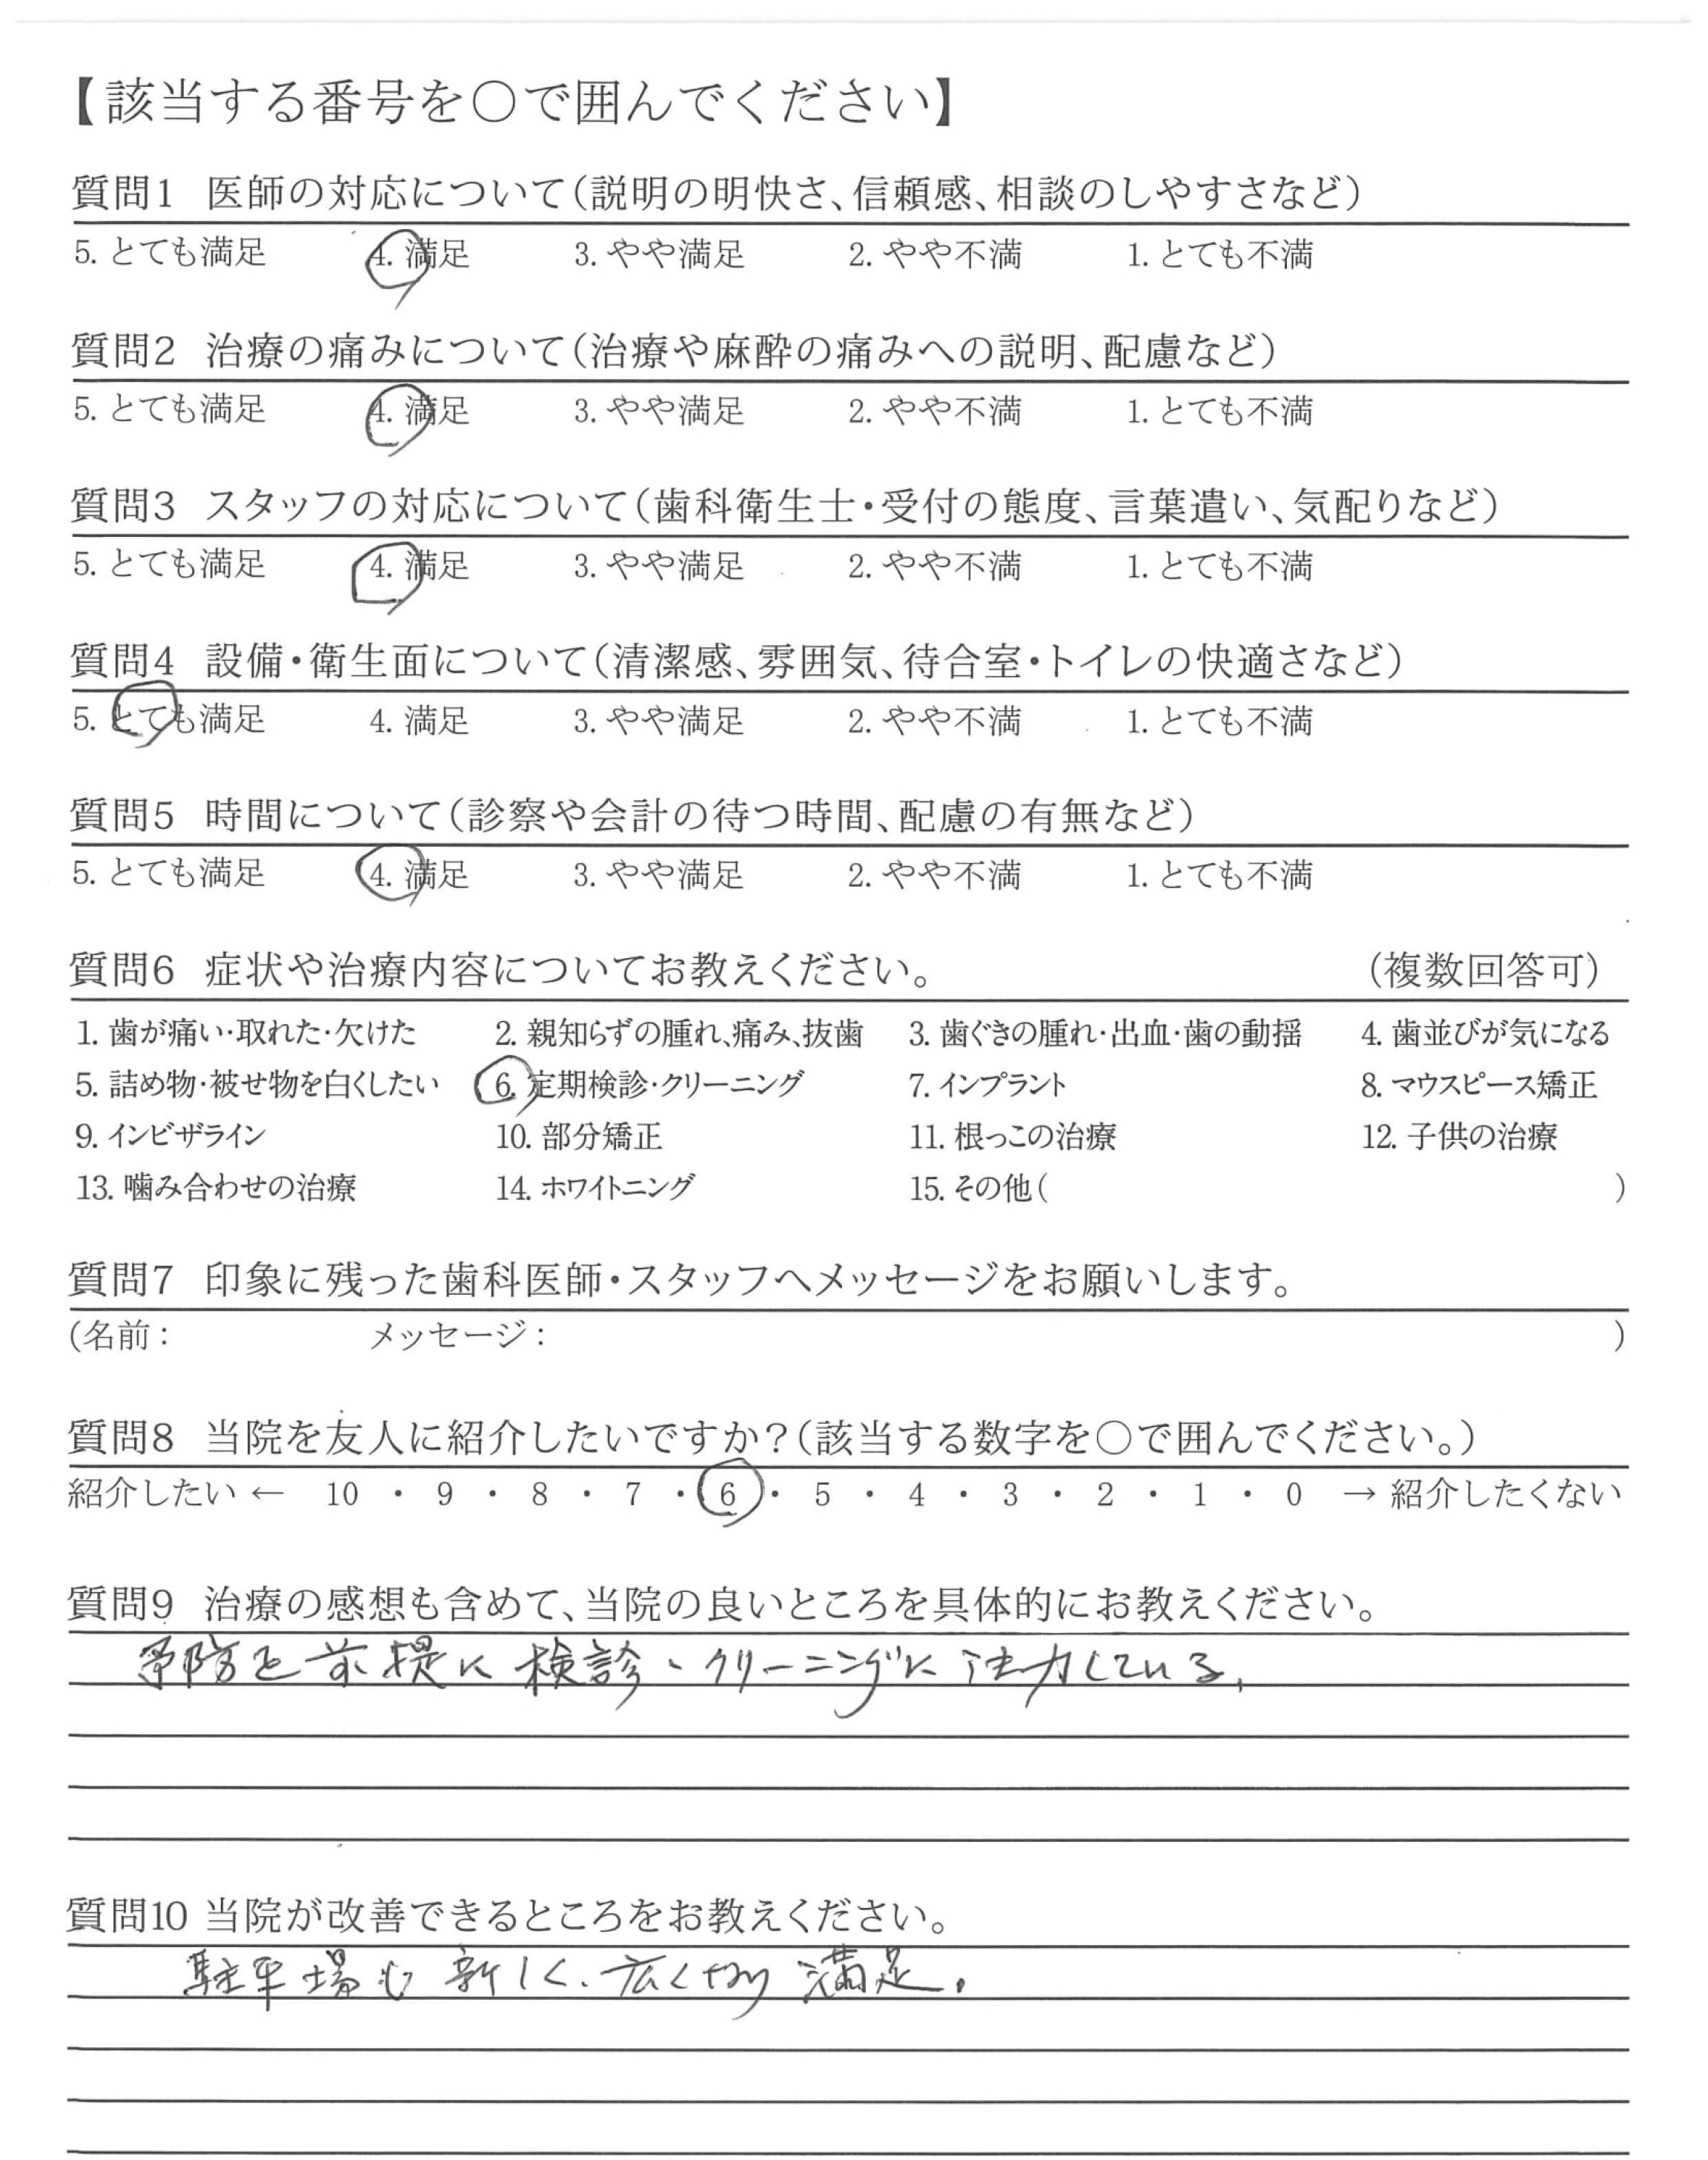 【該当する番号を〇で囲んでください】
質問1 医師の対応について(説明の明快さ、信頼感、相談のしやすさなど)
5. とても満足 4. 満足 3. やや満足 2. やや不満 1. とても不満
質問2 治療の痛みについて(治療や麻酔の痛みへの説明、配慮など)
5. とても満足 4. 満足 3. やや満足 2. やや不満 1. とても不満
質問3 スタッフの対応について(歯科衛生士・受付の態度、言葉遣い、気配りなど)
5. とても満足 4. 満足 3. やや満足 2. やや不満 1. とても不満
質問4 設備・衛生面について(清潔感、雰囲気、待合室・トイレの快適さなど)
5. とても満足 4. 満足 3. やや満足 2. やや不満 1. とても不満
質問5 時間について(診察や会計の待つ時間、配慮の有無など)
5. とても満足 4. 満足 3. やや満足 2. やや不満 1. とても不満
質問6 症状や治療内容についてお教えください。 (複数回答可)
1. 歯が痛い・取れた・欠けた 2. 親知らずの腫れ、痛み、抜歯 3. 歯ぐきの腫れ・出血・歯の動揺 4. 歯並びが気になる
5. 詰め物・被せ物を白くしたい 6. 定期検診・クリーニング 7. インプラント 8. マウスピース矯正
9. インビザライン 10. 部分矯正 11. 根っこの治療 12. 子供の治療
13. 噛み合わせの治療 14. ホワイトニング 15. その他( )
質問7 印象に残った歯科医師・スタッフへメッセージをお願いします。
(名前: メッセージ: )
質問8 当院を友人に紹介したいですか?(該当する数字を〇で囲んでください。)
紹介したい ← 10 ・ 9 ・ 8 ・ 7 ・ 6 ・ 5 ・ 4 ・ 3 ・ 2 ・ 1 ・ 0 → 紹介したくない
質問9 治療の感想も含めて、当院の良いところを具体的にお教えください。
予防を前提に検診、クリーニングに注力している。
質問10 当院が改善できるところをお教えください。
駐車場も新しく、広くなり満足。